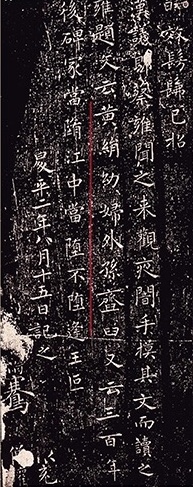 效髣髴已招
漢議郎蔡雍聞之来觀夜闇手摸其文而讀之
雍題文云黃絹幼婦外孫齏臼又云三百年
後碑冢當墮江中當墮不墮逢王叵
昇平二年八月十五日記之
騫
充